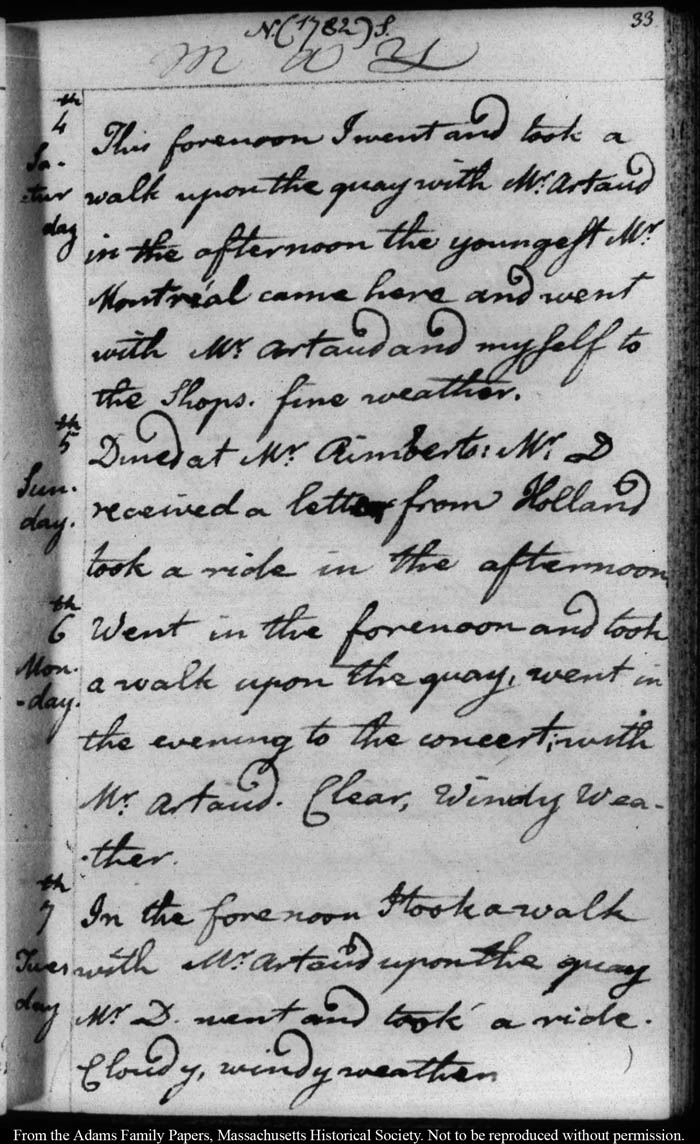 33
N.(1782)S.
May
4th
Satur
day
This forenoon I went and took a
walk upon the quay with Mr. Artaud
in the afternoon the youngest Mr.
Montréal came here and went
with Mr. Artaud and myself to
the Shops. fine weather.
5th
Sun.
day.
Dined at Mr. Rimberts: Mr. D
received a letter from Holland
took a ride in the afternoon
6th
Mon.
-day.
Went in the forenoon and took
a walk upon the quay, went in
the evening to the concert; with
Mr. Artaud. Clear, Windy Wea-
-ther.
7th
Tues
day
In the forenoon I took a walk
with Mr. Artaud upon the quay
Mr. D. went and took a ride.
Cloudy, windy weather
From the Adams Family Papers, Massachusetts Historical Society. Not to be reproduced without permission.